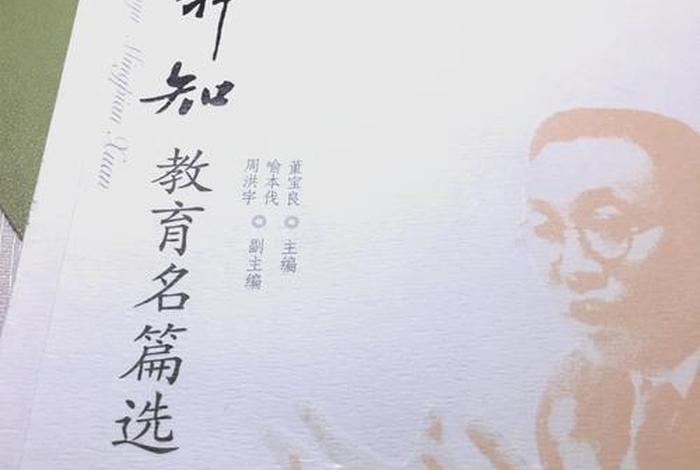 行知
教育名篇选
董宝良 ◎ 主编
喻本伐
周洪宇 ◎ 副主编
Mingpian Xuan